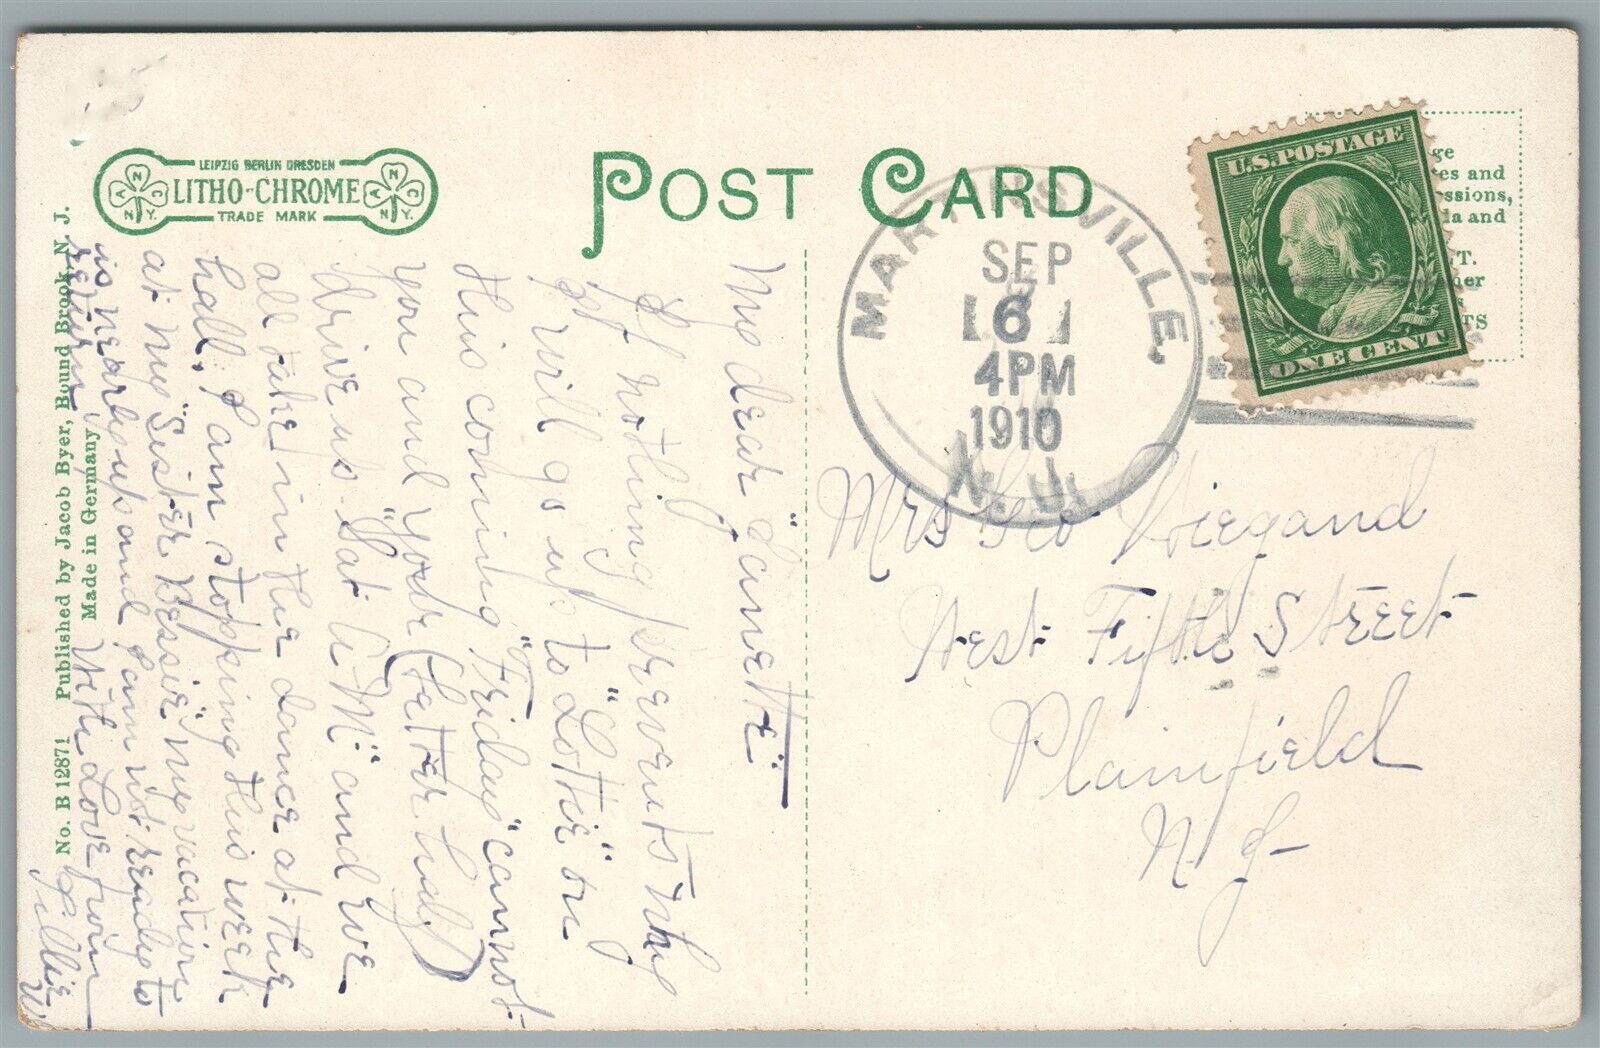 LEIPZIG BERLIN DRESDEN
LITHO-CHROME
TRADE MARK
A N C N.Y.
A N C N.Y.
POST CARD
MARTINSVILLE,
SEP
6
4PM
1910
N.J.
U.S. POSTAGE
ONE CENT
ge
es and
ssions,
la and
T.
her
TS
No. B 12871 Published by Jacob Byer, Bound Brook, N. J.
Made in Germany
My dear "Janette"
If nothing prevents my
gf will go up to "Lottie" on
this coming "Friday" cannot
you and your (better half)
drive us "Sat A M" and we
all take in the dance at the
hall, I am stopping this week
at my "Sister Bessie" my vacation
is nearly up and I am not ready to
return, With Love from
Lillie
Mrs Geo Wiegand
West Fifth Street
Plainfield
N. J-